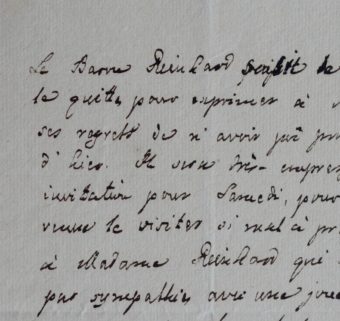 Le Baron Reinhard profite de
le quitte pour exprimer à
ses regrets de n'avoir pu
d'hier. Il sera très-empres
invitation pour Samedi, pour
venu le visiter si mal à pr
à Madame Reinhard qui
par sympathie avec une jou